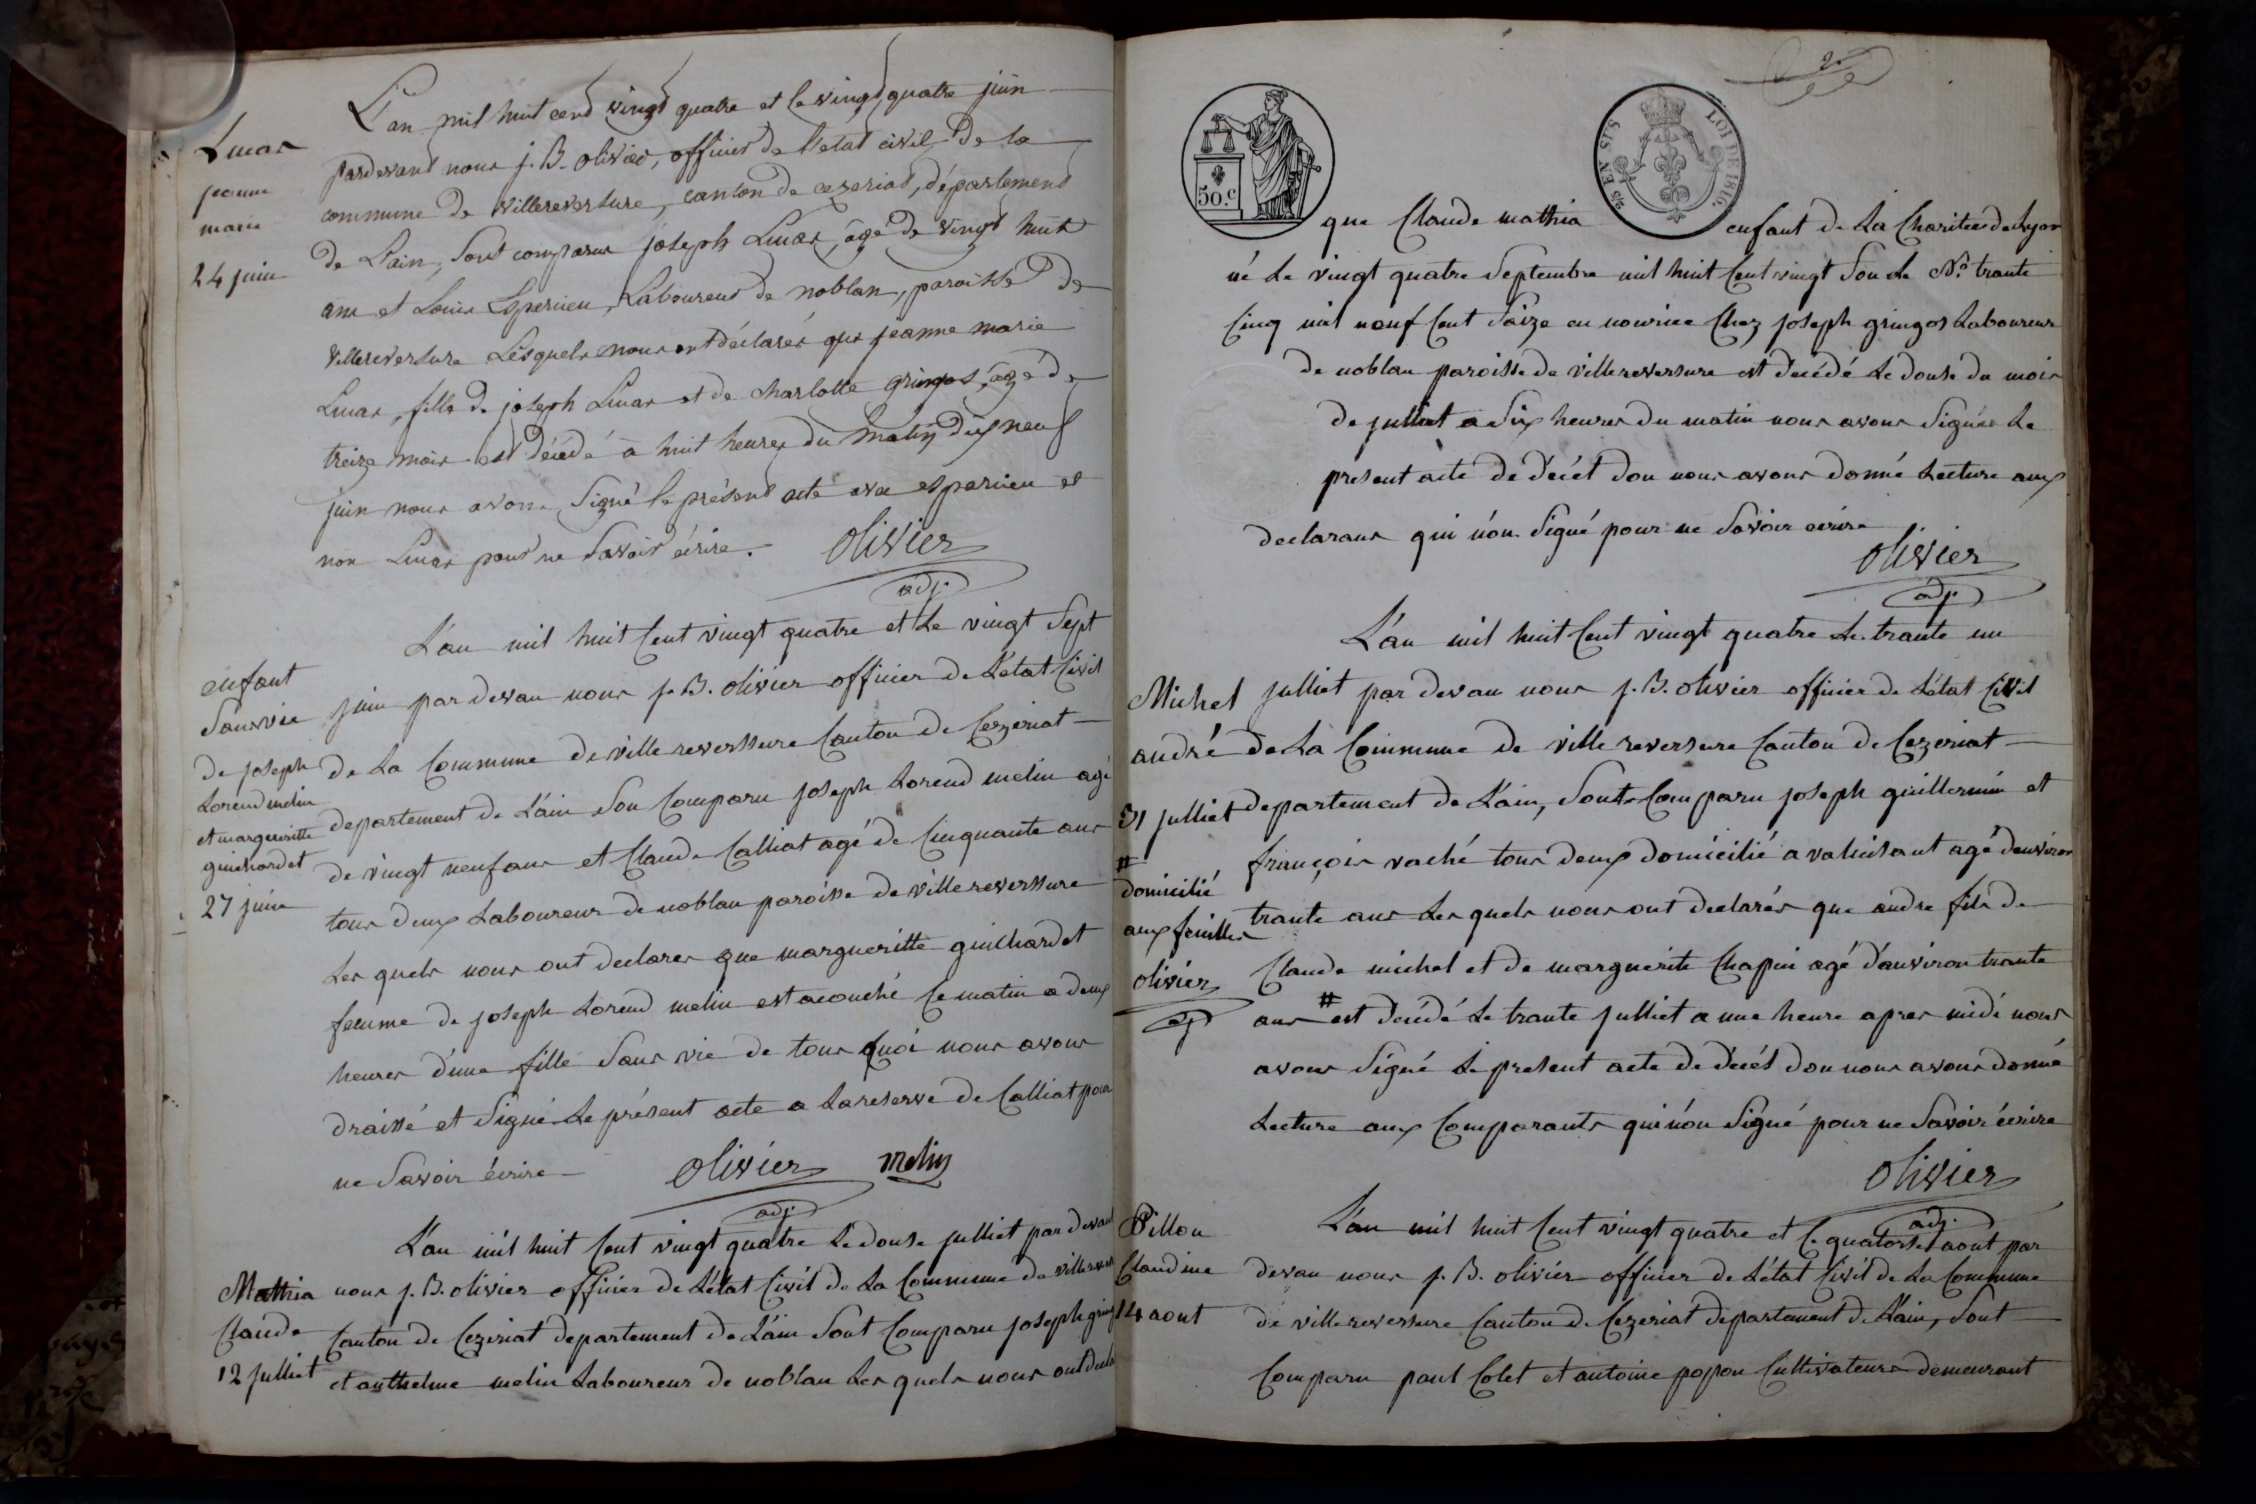 Luiar
jeanne
marie
24 juin
L'an mil huit cend vingt quatre et le vingt quatre juin
pardevant nous j. B. olivier, officier de l'etat civil de la
commune de villereversure, canton de cezeriat, département
de L'ain, sont comparus joseph Luiar, âgé de vingt huit
ans et Louis Esperieu, Laboureur de noblan, paroisse de
villereversure Lesquels nous ont déclarés que jeanne marie
Luiar, fille de joseph Luiar et de charlotte gringos, agé de
treize mois est décédé à huit heures du matin dix neuf
juin nous avons signé le présent acte avec esperieu et
non Luiar pour ne savoir écrire.
Olivier
adj.
enfant
sans vie
de joseph
Lorend melin
et margueritte
guichardet
27 juin
L'an mil huit cent vingt quatre et Le vingt sept
juin par devan nous j. B. olivier officier de L'etat civil
de La Commune de villereverssure Canton de Cezeriat
departement de L'ain son Comparu joseph Lorend melin agé
de vingt neuf ans et Claude Calliat agé de Cinquante ans
tous deux Laboureur de noblan paroisse de villereverssure
Les quels nous ont declarer que margueritte guichardet
femme de joseph Lorend melin est acouché ce matin a deux
heures d'une fille sans vie de tous quoi nous avons
draissé et signé Le présent acte a La reserve de Calliat pour
ne savoir écrire
Olivier melin
adj.
Mathia
Claude
12 julliet
L'an mil huit cent vingt quatre Le douse julliet par devant
nous j. B. olivier officier de L'état Civil de La Commune de
Canton de Cezeriat departement de L'ain sont Comparu joseph
et anthelme melin Laboureur de noblan Les quels nous ont
2
50.c
EN SUS
LOI DE 1816
que Claude mathia enfant de La Charitée de Lyon
né Le vingt quatre septembre mil huit Cent vingt sou Le No. trante
Cinq mil nouf Cent saize en nourice Chez joseph gringos Laboureur
de noblan paroisse de villereversure est decédé Le douse du mois
de julliet a six heures du matin nous avons signés Le
present acte de décét don nous avons donné Lecture aux
declarans qui n'on signé pour ne savoir ecrire
Olivier
adj.
Michel
andré
31 julliet
#
domicilié
aux feuilles
olivier
adj
L'an mil huit Cent vingt quatre Le trante un
julliet par devan nous j. B. olivier officier de L'état Civil
de La Commune de villereversure Canton de Cezeriat
departement de L'ain, sont Comparu joseph guillermin et
françois vaché tous deux domicilié a valuisant agé d'anviron
trante ans Les quels nous ont declarés que andre fils de
Claude michel et de marguerite Chapui agé d'anviron trante
ans # est décédé Le trante julliet a une heure apres midi nous
avons signé Le present acte de décés don nous avons donné
Lecture aux Comparants qui n'on signé pour ne savoir écrire
Olivier
adj.
Pillon
Claudine
14 aout
L'an mil huit Cent vingt quatre et Le quatorse aout par
devan nous j. B. olivier officier de L'état Civil de La Commune
de villereversure Canton de Cezeriat departement de L'ain, sont
Comparu paul Colet et antoine popon Cultivateurs demeurant